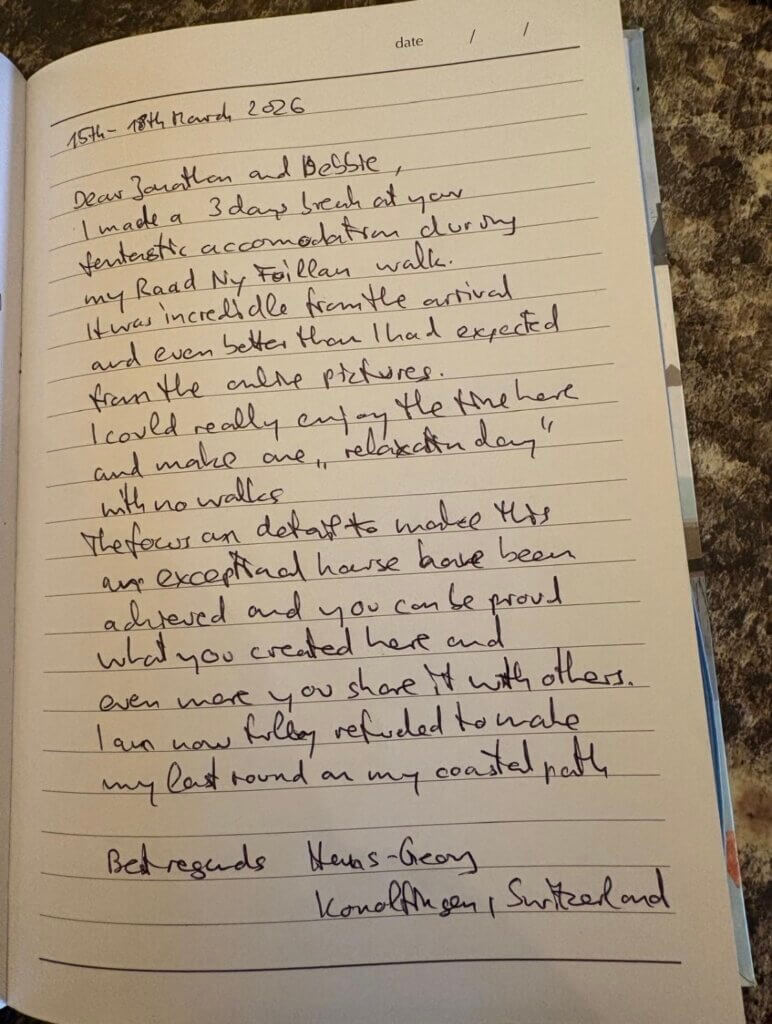 date / /
15th - 18th March 2026
Dear Jonathan and Debbie,
I made a 3 days break at your
fentastic accomodation during
my Raad Ny Foillan walk.
It was incredible from the arrival
and even better than I had expected
from the online pictures.
I could really enjoy the time here
and make one „relaxation day“
with no walks
The focus on detail to make this
an exceptional house have been
achieved and you can be proud
what you created here and
even more you share it with others.
I am now fully refueled to make
my last round on my coastal path
Best regards Hans-Georg
Konolfingen, Switzerland